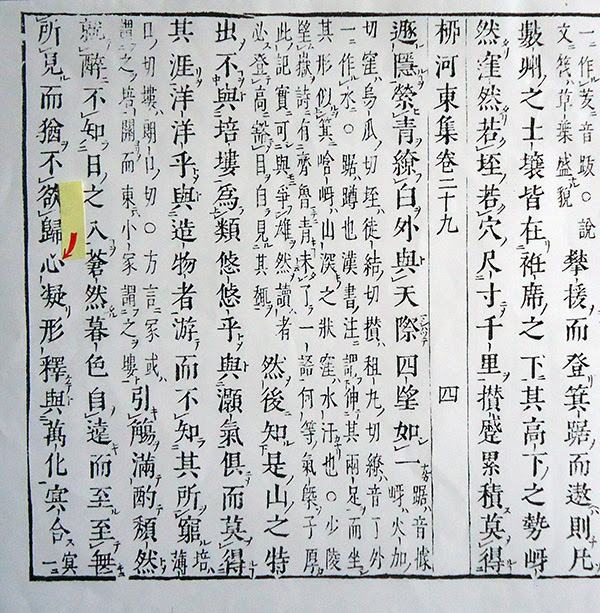 一作茇音跋○說
文茷草葉盛貌
攀援而登箕踞而遨則凡
數州之土壤皆在袵席之下其高下之勢岈
然窪然若垤若穴尺寸千里攅蹙累積莫得
柳河東集卷二十九 四
遯隱縈青繚白外與天際四望如一
踞音據
岈火加
切窪烏瓜切垤徒結切攅徂丸切繚音了外
一作水○踞蹲也漢書注謂伸其兩足而坐
其形似箕谽岈山深之狀窪水汙也○少陵
望嶽詩有齊魯青未了一語何等氣槩子厚
此記實可與爭雄然讀者
必登高豁目自見其趣
然後知是山之特
出不與培塿爲類悠悠乎與灝氣俱而莫得
其涯洋洋乎與造物者游而不知其所窮
培
薄
口切塿朗口切○方言冢或
謂之培關而東小冢謂之塿
引觴滿酌頹然
就醉不知日之入蒼然暮色自遠而至至無
所見而猶不欲歸心凝形釋與萬化冥合
冥
一